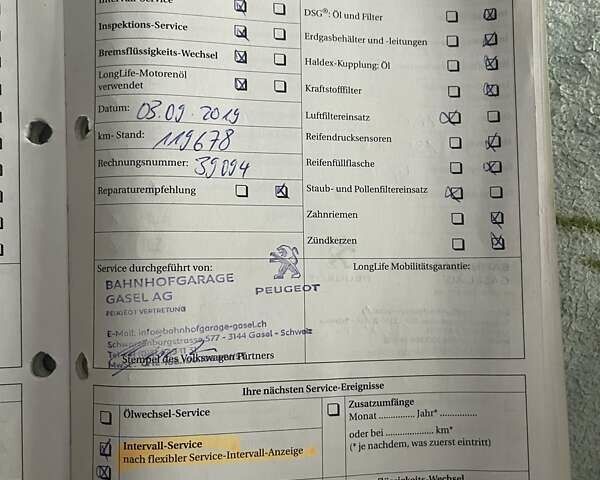 Intervall-Service
Inspektions-Service
Bremsflüssigkeits-Wechsel
LongLife-Motorenöl
verwendet
Datum: 03.09.2019
km-Stand: 119678
Rechnungsnummer: 39094
Reparaturempfehlung
DSG®: Öl und Filter
Erdgasbehälter und -leitungen
Haldex-Kupplung: Öl
Kraftstofffilter
Luftfiltereinsatz
Reifendrucksensoren
Reifenfüllflasche
Staub- und Pollenfiltereinsatz
Zahnriemen
Zündkerzen
Service durchgeführt von:
BAHNHOFGARAGE
GASEL AG
PEUGEOT VERTRETUNG
PEUGEOT
E-Mail: info@bahnhofgarage-gasel.ch
Schwarzenburgstrasse 577 - 3144 Gasel - Schweiz
Stempel des Volkswagen Partners
LongLife Mobilitätsgarantie:
Ihre nächsten Service-Ereignisse
Ölwechsel-Service
Intervall-Service
nach flexibler Service-Intervall-Anzeige
Zusatzumfänge
Monat ............... Jahr* ...............
oder bei ............... km*
(* je nachdem, was zuerst eintritt)